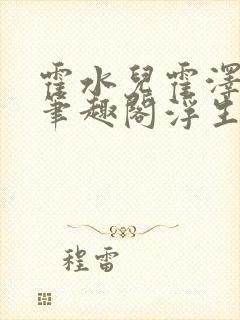 霍水兒霍澤
筆趣閣浮生
程雷